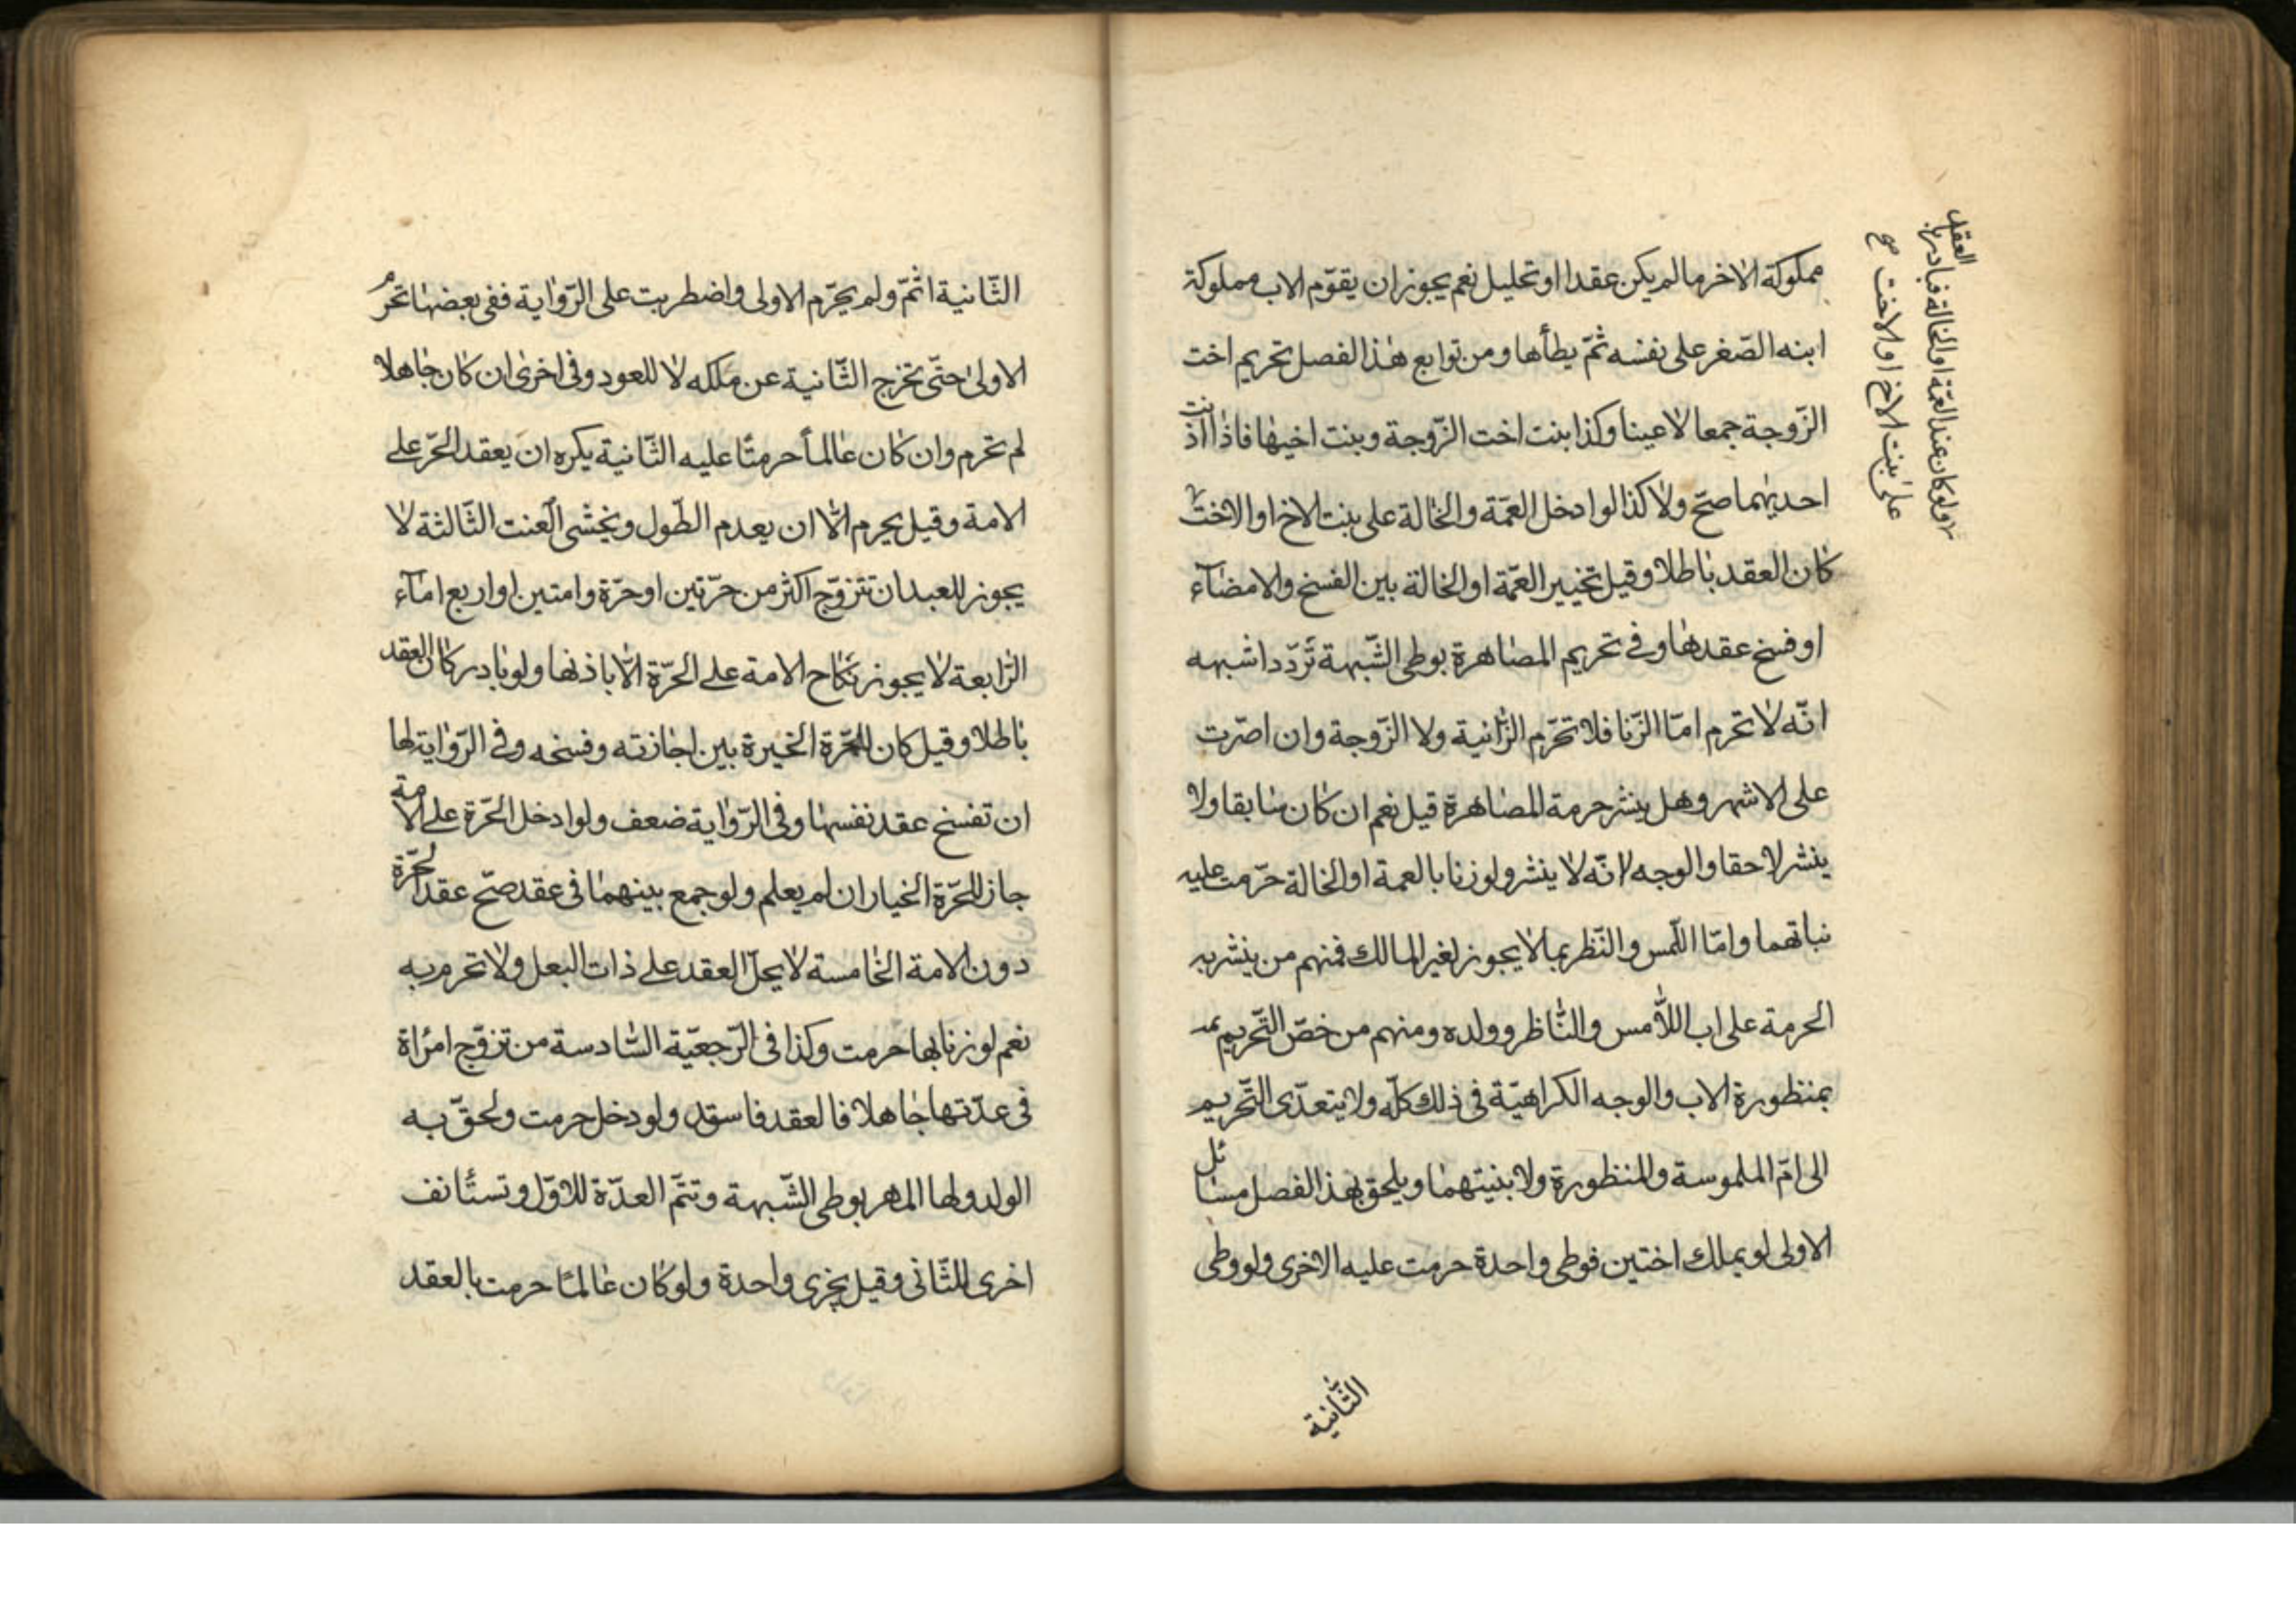 مملوكة الاخر مالم يكن عقدا او تحليل نعم يجوز ان يقوّم الاب مملوكة
ابنه الصّغر على نفسه ثمّ يطأها ومن توابع هذا الفصل تحريم اخت
الزّوجة جمعا لا عينا وكذا بنت اخت الزّوجة وبنت اخيها فاذا اذنت
احديهما صحّ ولا كذا لو ادخل العمّة والخالة على بنت الاخ او الاخت
كان العقد باطلا وقيل تخيير العمّة او الخالة بين الفسخ والامضاء
او فسخ عقدها وفي تحريم المصاهرة بوطى الشّبهة تردّد اشبهه
انّه لا تحرم امّا الزّنا فلا تحرّم الزّانية ولا الزّوجة وان اصرّت
على الاشهر وهل ينشر حرمة المصاهرة قيل نعم ان كان سابقا ولا
ينشر لاحقا والوجه انّه لا ينشر ولو زنا بالعمة او الخالة حرّمت عليه
نباتهما وامّا اللّمس والنّظر بما لا يجوز لغير المالك فمنهم من ينشر به
الحرمة على اب اللّامس والنّاظر وولده ومنهم من خصّ التّحريم
بمنظورة الاب والوجه الكراهيّة في ذلك كلّه ولا يتعدّى التّحريم
الى امّ الملموسة والمنظورة ولا بنيتهما ويلحق بهذا الفصل مسائل
الاولى لو يملك اختين فوطى واحدة حرمت عليه الاخرى ولو وطى
الثّانية
العقد
ولو كان عند العمّة او الخالة فبادر با
على بنت الاخ او الاخت صح
الثّانية اثمّ ولم يحرّم الاولى واضطربت على الرّواية ففى بعضها تحرم
الاولى حتّى تخرج الثّانية عن ملكه لا للعود وفى اخرى ان كان جاهلا
لم تحرم وان كان عالمأ حرمتا عليه الثّانية يكره ان يعقد الحرّ على
الامة وقيل يحرم الّا ان يعدم الطّول ويخشى العنت الثّالثة لا
يجوز للعبد ان تتزوّج اكثر من حرّتين او حرّة وامتين او اربع امآء
الرّابعة لا يجوز نكاح الامة على الحرّة الّا باذنها ولو بادر كان العقد
باطلا وقيل كان للحرّة الخيرة بين اجازته وفسخه وفى الرّواية لها
ان تفسخ عقد نفسها وفى الرّواية ضعف ولو ادخل الحرّة على الامة
جاز للحرّة الخيار ان لم يعلم ولو جمع بينهما فى عقد صحّ عقد الحرّة
دون الامة الخامسة لا يحلّ العقد على ذات البعل ولا تحرم به
نعم لو زنا بها حرمت وكذا فى الرّجعيّة السّادسة من تزوّج امرأة
فى عدّتها جاهلا فالعقد فاسد ولو دخل حرمت ولحقّ به
الولد ولها المهر بوطى الشّبهة وتتمّ العدّة للاوّل وتستأنف
اخرى للثّانى وقيل يجزى واحدة ولو كان عالما حرمت بالعقد